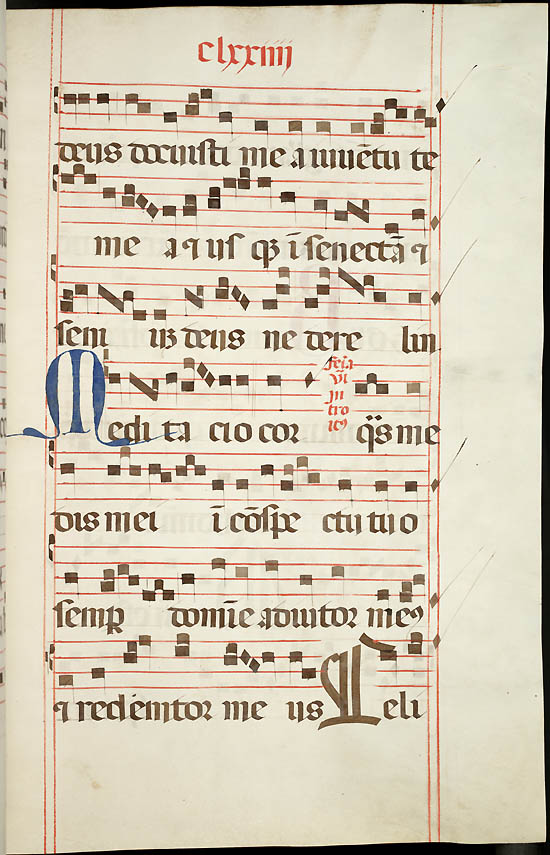 clxxiiii
deus docuisti me a iuuētu te
me a ⁊ us qȝ ī senectā ⁊
sem ub deus ne dere lin
feria
vi
in
tro
itꝰ
Medi ta cio cor q̄s me
dis mei ī cōspe ctu tu o
semꝑ domīe adiutor meꝰ
⁊ redemtor me us Celi